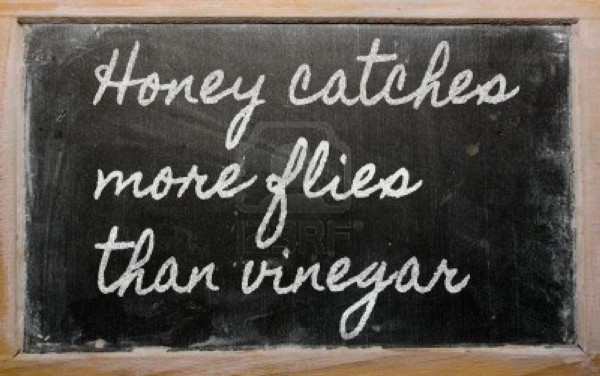 Honey catches
more flies
than vinegar